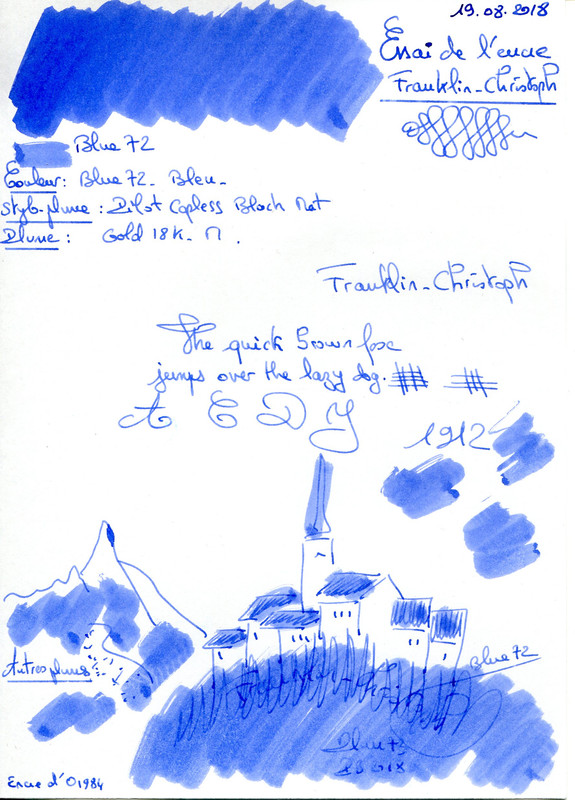 19.08.2018
Essai de l'encre
Franklin-Christoph
Blue 72
Couleur: Blue 72 - Bleu -
Stylo-plume: Pilot Capless Black Mat
Plume: Gold 18K - M.
Franklin-Christoph
The quick brown fox
jumps over the lazy dog.
A E D Y
1912
Autres plumes
Blue 72
Blue 72
Encre d'O1984